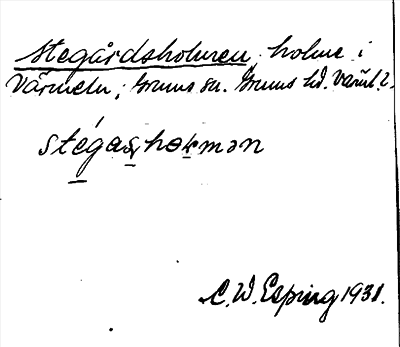 Stegårdsholmen, holme i
Värmeln; Grums sn. Grums hd. Värml.
stégaṣhoḷmən
C. W. Esping 1931.